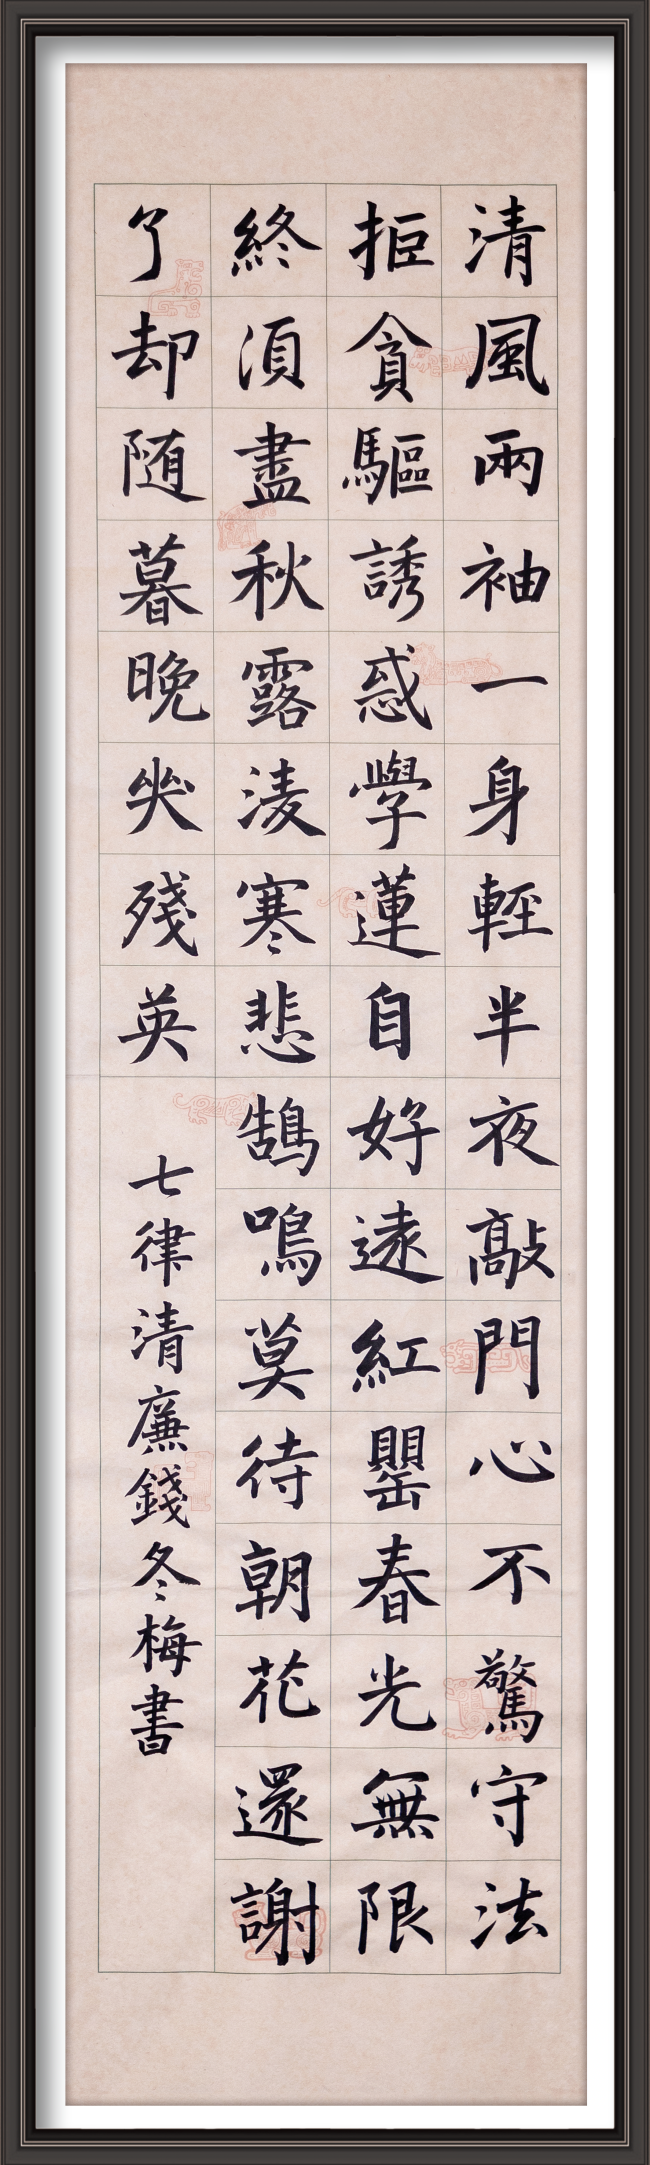 清風兩袖一身輕半夜敲門心不驚守法
拒貪驅誘惑學蓮自好遠紅罌春光無限
終湏盡秋露淩寒悲鵠鳴莫待朝花還謝
了却随暮晚哭殘英
七律清廉錢冬梅書